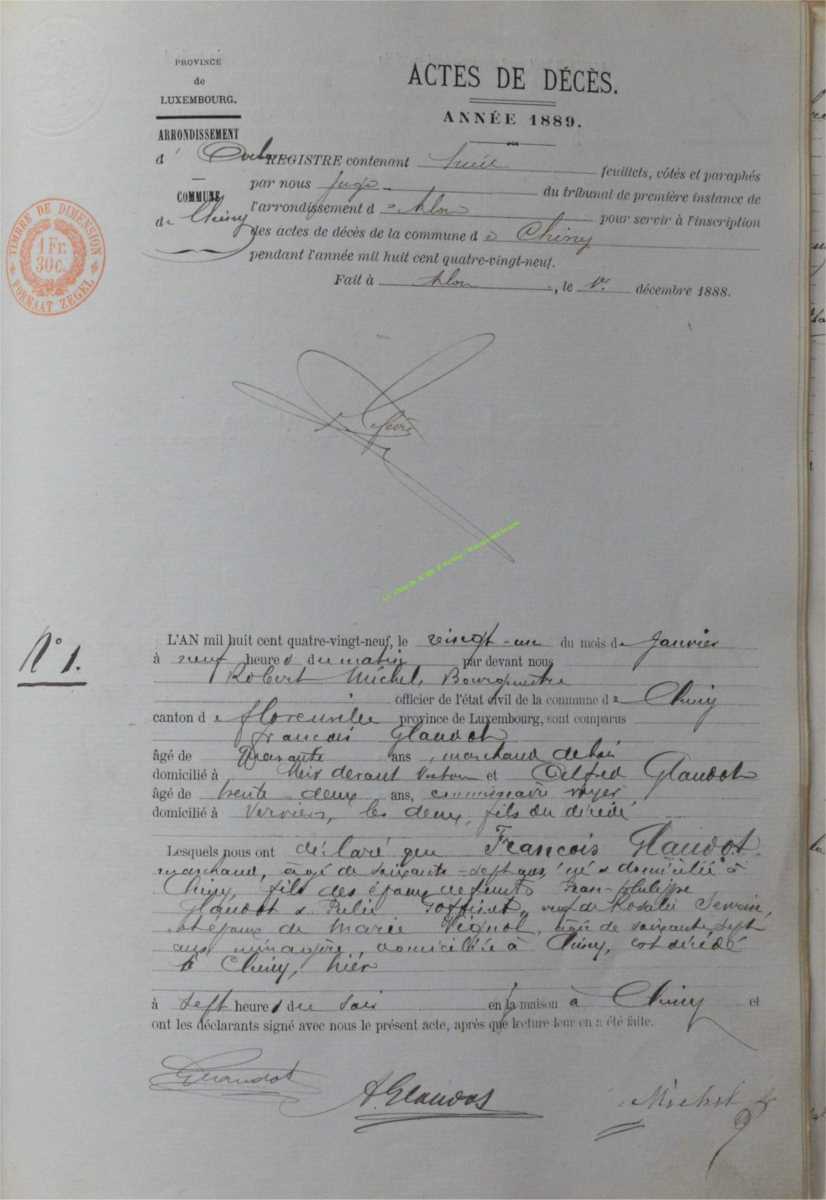 PROVINCE
de
LUXEMBOURG.
ARRONDISSEMENT
d'
COMMUNE
de Chiny
ACTES DE DÉCÈS.
ANNÉE 1889.
REGISTRE contenant huit feuillets, côtés et paraphés
par nous Juge du tribunal de première instance de
l'arrondissement d'Arlon pour servir à l'inscription
des actes de décès de la commune de Chiny
pendant l'année mil huit cent quatre-vingt-neuf.
Fait à Arlon, le 1er décembre 1888.
TIMBRE DE DIMENSION
1 Fr.
30 c.
FORMAAT ZEGEL
N° 1.
L'AN mil huit cent quatre-vingt-neuf, le vingt-un du mois de Janvier
à neuf heures du matin par devant nous
Robert Michel, Bourgmestre
officier de l'état civil de la commune de Chiny
canton de Florenville province de Luxembourg, sont comparus
François Glaudot
âgé de Quarante ans, marchand de bois
domicilié à Meix devant Virton et Alfred Glaudot
âgé de trente deux ans, commissaire voyer
domicilié à Verviers, les deux, fils du décédé
Lesquels nous ont déclaré que François Glaudot
marchand, âgé de soixante-sept ans, né & domicilié à
Chiny, fils des époux defunts Jean-Philippe
Glaudot & Goffinet, veuf de Rosalie Servais,
et époux de Marie Vignol, âgée de soixante sept
ans ménagère, domiciliée à Chiny, est décédé
à Chiny, hier
à sept heures du soir en la maison à Chiny et
ont les déclarants signé avec nous le présent acte, après que lecture leur en a été faite.
Glaudot
A. Glaudot
Michel R